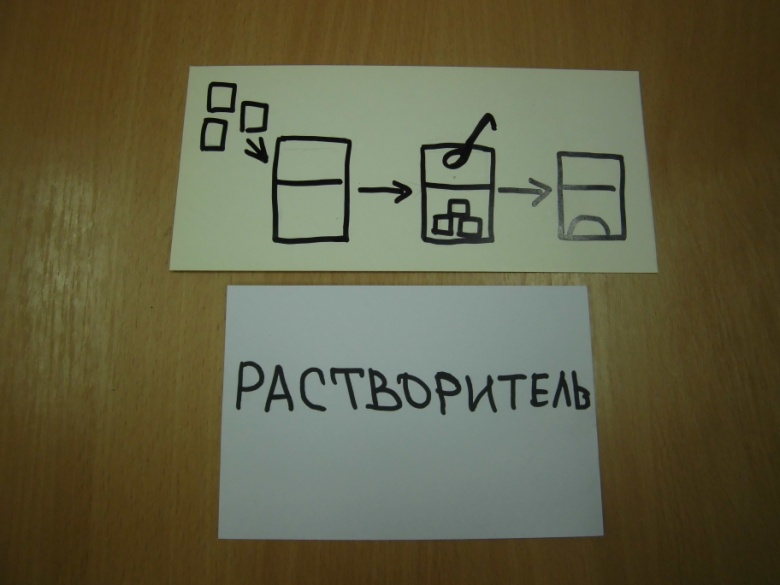 РАСТВОРИТЕЛЬ